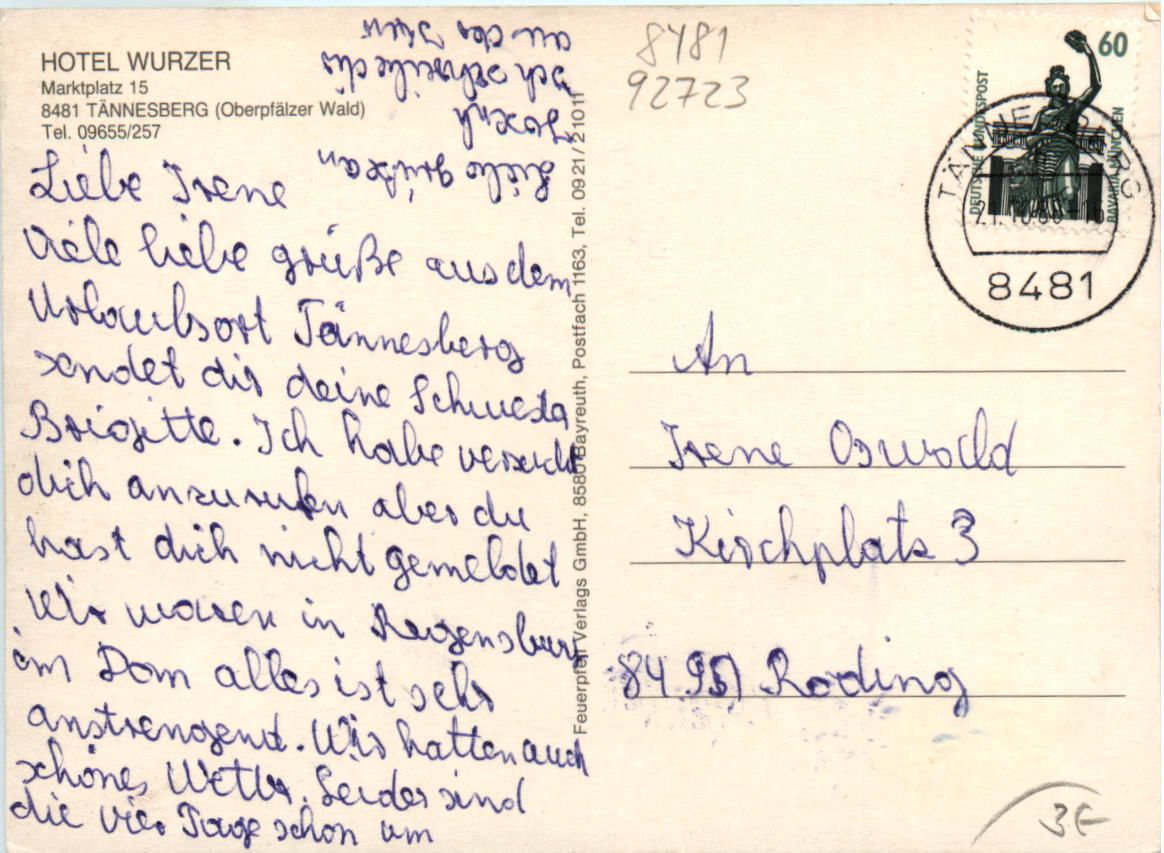 HOTEL WURZER
Marktplatz 15
8481 TÄNNESBERG (Oberpfälzer Wald)
Tel. 09655/257
Liebe Irene
Viele liebe grüße aus dem
Urlaubsort Tännesberg
sendet dir deine Schwester
Brigitte. Ich habe versucht
dich anzurufen aber du
hast dich nicht gemeldet
Wir waren in Regensburg
im Dom alles ist sehr
anstrengend. Wir hatten auch
schönes Wetter. Leider sind
die vier Tage schon um
Liebe grüße an
Joseph
Ich schreibe dir
an der
Feuerpfeil Verlags GmbH, 8580 Bayreuth, Postfach 1163, Tel. 09 21 / 2 10 11
8481
92723
60
DEUTSCHE BUNDESPOST
BAVARIA MÜNCHEN
TÄNNESBERG
8481
An
Irene Oswald
Kirchplatz 3
8495 Roding
3€